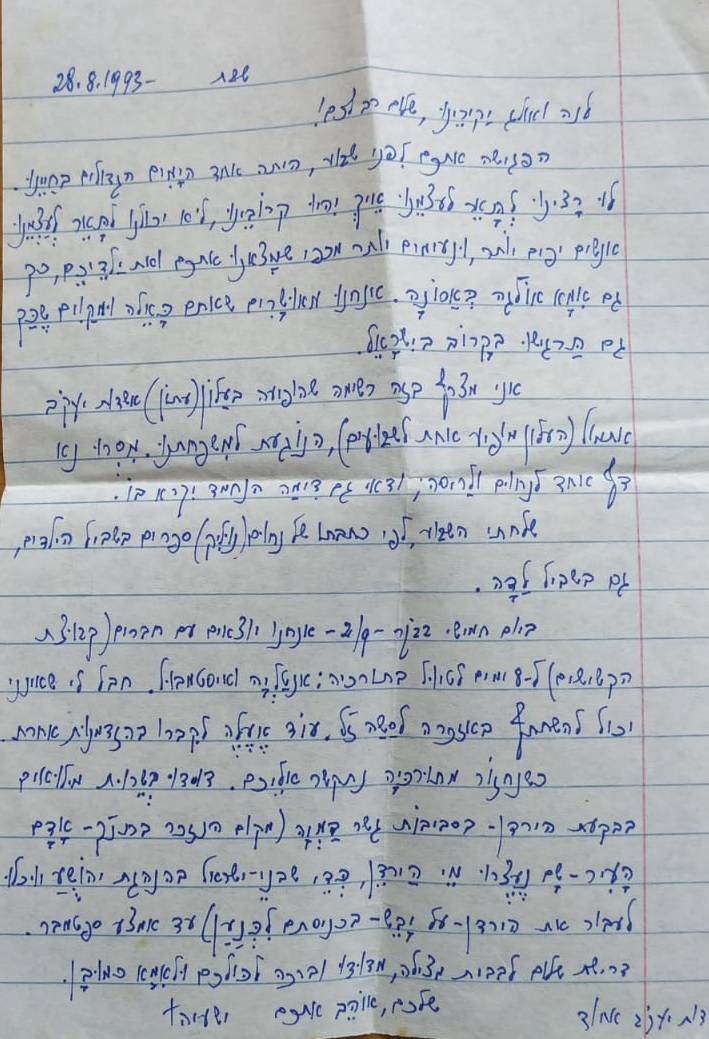 שבת 28.8.1993-
לנה ואולג יַקִירֵינו, שלום רב לכם!
הפגישה אתכם לִפְני שבוע, היתה אחד הַיָמִים הגדולים בְּחַיֵינוּ.
לוּ רָצִינוּ לְתָאֵר לְעַצְמֵנוּ אֵיךְ יִהְיוּ קְרוֹבֵינוּ, לֹיא יכולנו לְתָאֵר לְעַצְמֵנוּ
אנשים יפים יותר, ונעימים יותר מכפי שֶמָצָאנוּ אתכם ואת יַלְדֵיכֶם, כך
גם אִמָא אוֹלגה בְּאֵסוֹנָה. אנחנו מאוּשָרִים שאתם כָּאֵלה ומְקַוִים שֶכַּךְ
גם תַרְגישו בְּקָרוֹב בְּיִשְרָאֵל.
אני מצרף בזה רשימה שהופיעה בעָלוֹן (עתון) אשדות יעקב
אתמול (העלון מופיע אחת לשבועים), הנוֹגעת למִשְפַּחתנו. מִסְרוּ נא
דף אחד לנחום ולָריסה; ודאי גם דִימָה הנחמד יקרא בו.
שלחתי השבוע, לפי כתבתו של נחום (נוֹליק) ספרים בשביל הילדים,
גם בשביל לָדָה.
ביום חמישי בבֹקר -2/9- אנחנו יוצאים עם חברים (קבוצת
הקשישים) ל-8 ימים לטיול בתורכיה: אַנְטַלְיָה ואיסטמבול. חבל לי שאינני
יכול להשתתף באזכרה לסָשָה ז"ל. עוֹד אֶעֱלֶה לקִברו בהזדמנות אחרת.
כשנחזור מתורכִּיָה נתקשר אֲליכם. דודו בְּשֵרות מילואים
בבקעת הירדן- בסביבות גשר דַמְיָה (מקום הנזכר בתנ"ך- אָדָם
הָעִיר- שָם נֶעֶצְרוּ מֵי הַירְדֵן, כְּדֵי, שבְּנֵי-ישראל בהנהגת יְהוֹשֻעַ יוכלו
לעבור את הירדן- על יָבֵש- בכניסתם לִכְנָעַן) עד אמצע ספטמבר.
דרישת שלום לבבית מצילה, מדודו וברכה לכולכם ולְאִמָא כמוּבָן.
שלכם, אוֹהֵב אתכם ישעיה